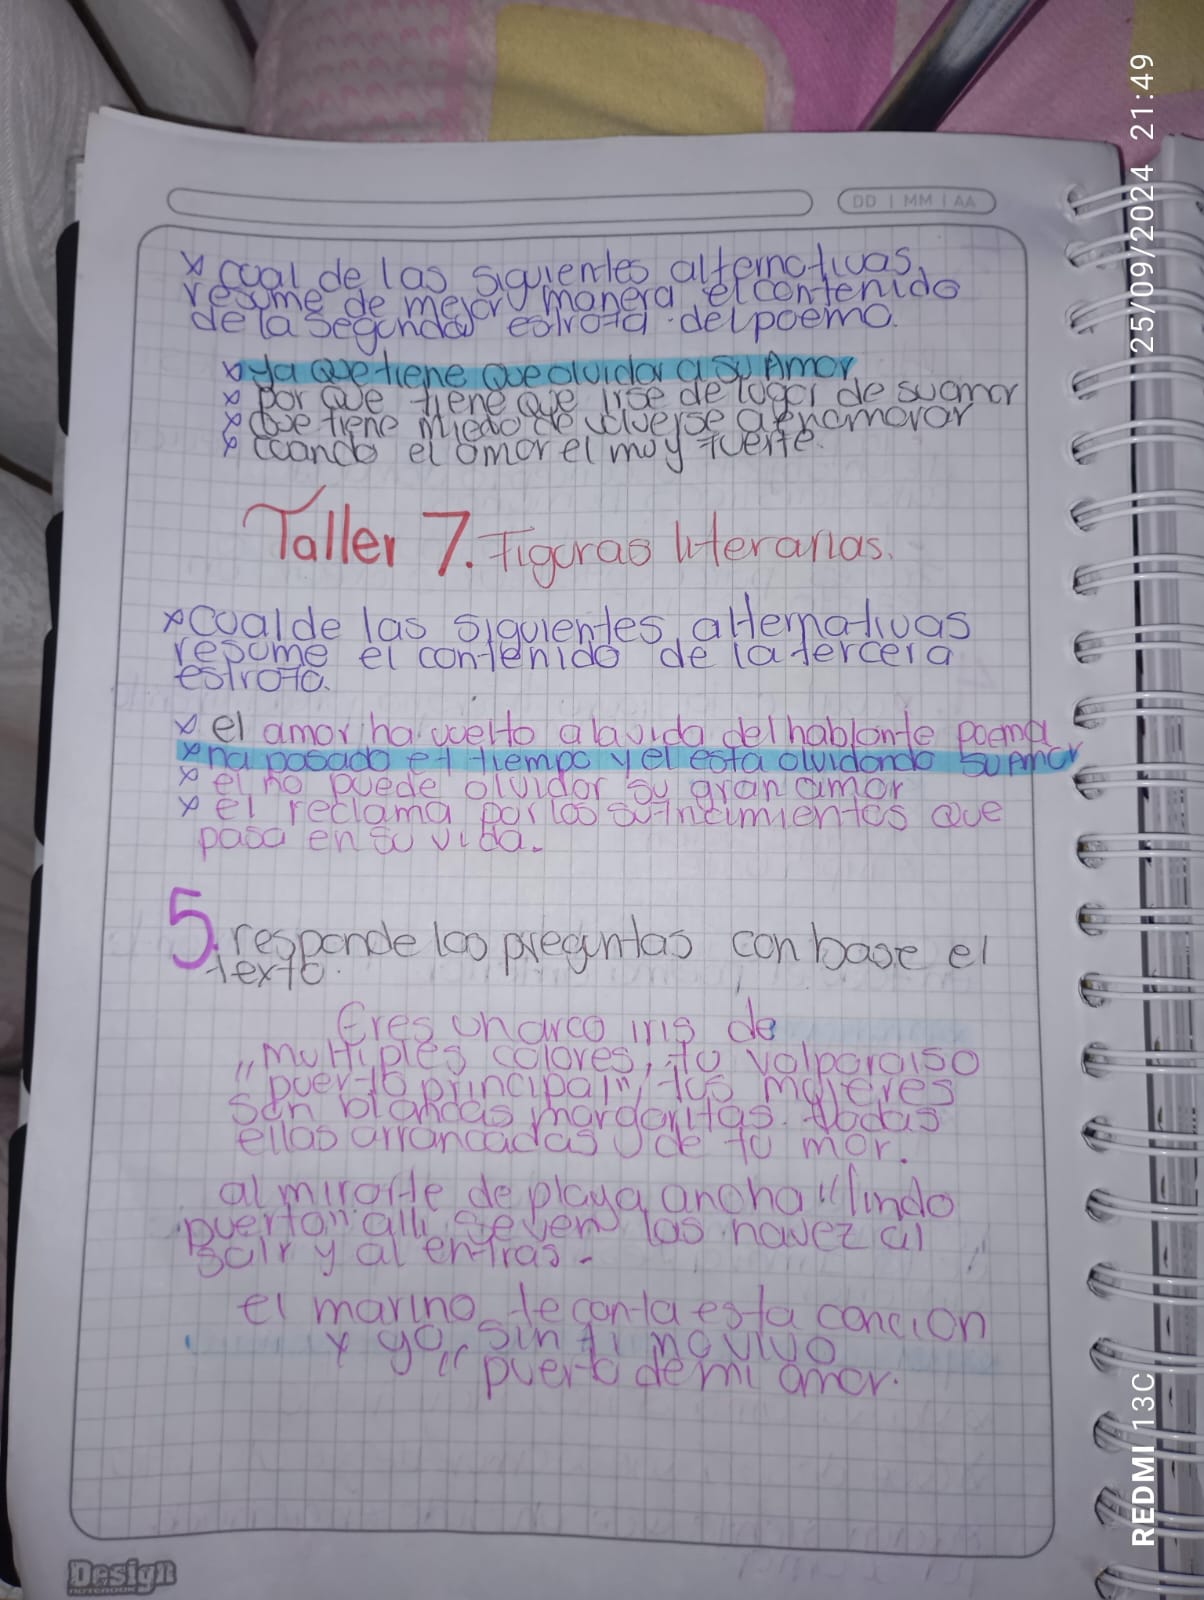 DD | MM | AA
x cual de las siguientes alternativas
resume de mejor manera el contenido
de la segunda estrofa del poema.
x Ya que tiene que olvidar a su Amor
x por que tiene que irse de lugar de su amor
x que tiene miedo de volverse a enamorar
x cuando el amor el muy fuerte.
Taller 7. Figuras literarias.
x cual de las siguientes alternativas
resume el contenido de la tercera
estrofa.
x el amor ha vuelto a la vida del hablante poema
x ha pasado el tiempo y el esta olvidando su Amor
x el no puede olvidar su gran amor
x el reclama por los sufrimientos que
pasa en su vida.
5. responde las preguntas con base el
texto.
Eres un arco iris de
"multiples colores, tu valparaiso
"puerto principal", tus mujeres
son blandas margaritas todas
ellas arrancadas de tu mar.
al mirarte de playa ancha "lindo
puerto" alli se ven las navez al
salir y al entras-
el marino te canta esta cancion
y yo, sin ti no vivo
"puerto de mi amor.
Design
NOTEBOOK
25/09/2024 21:49
REDMI 13C